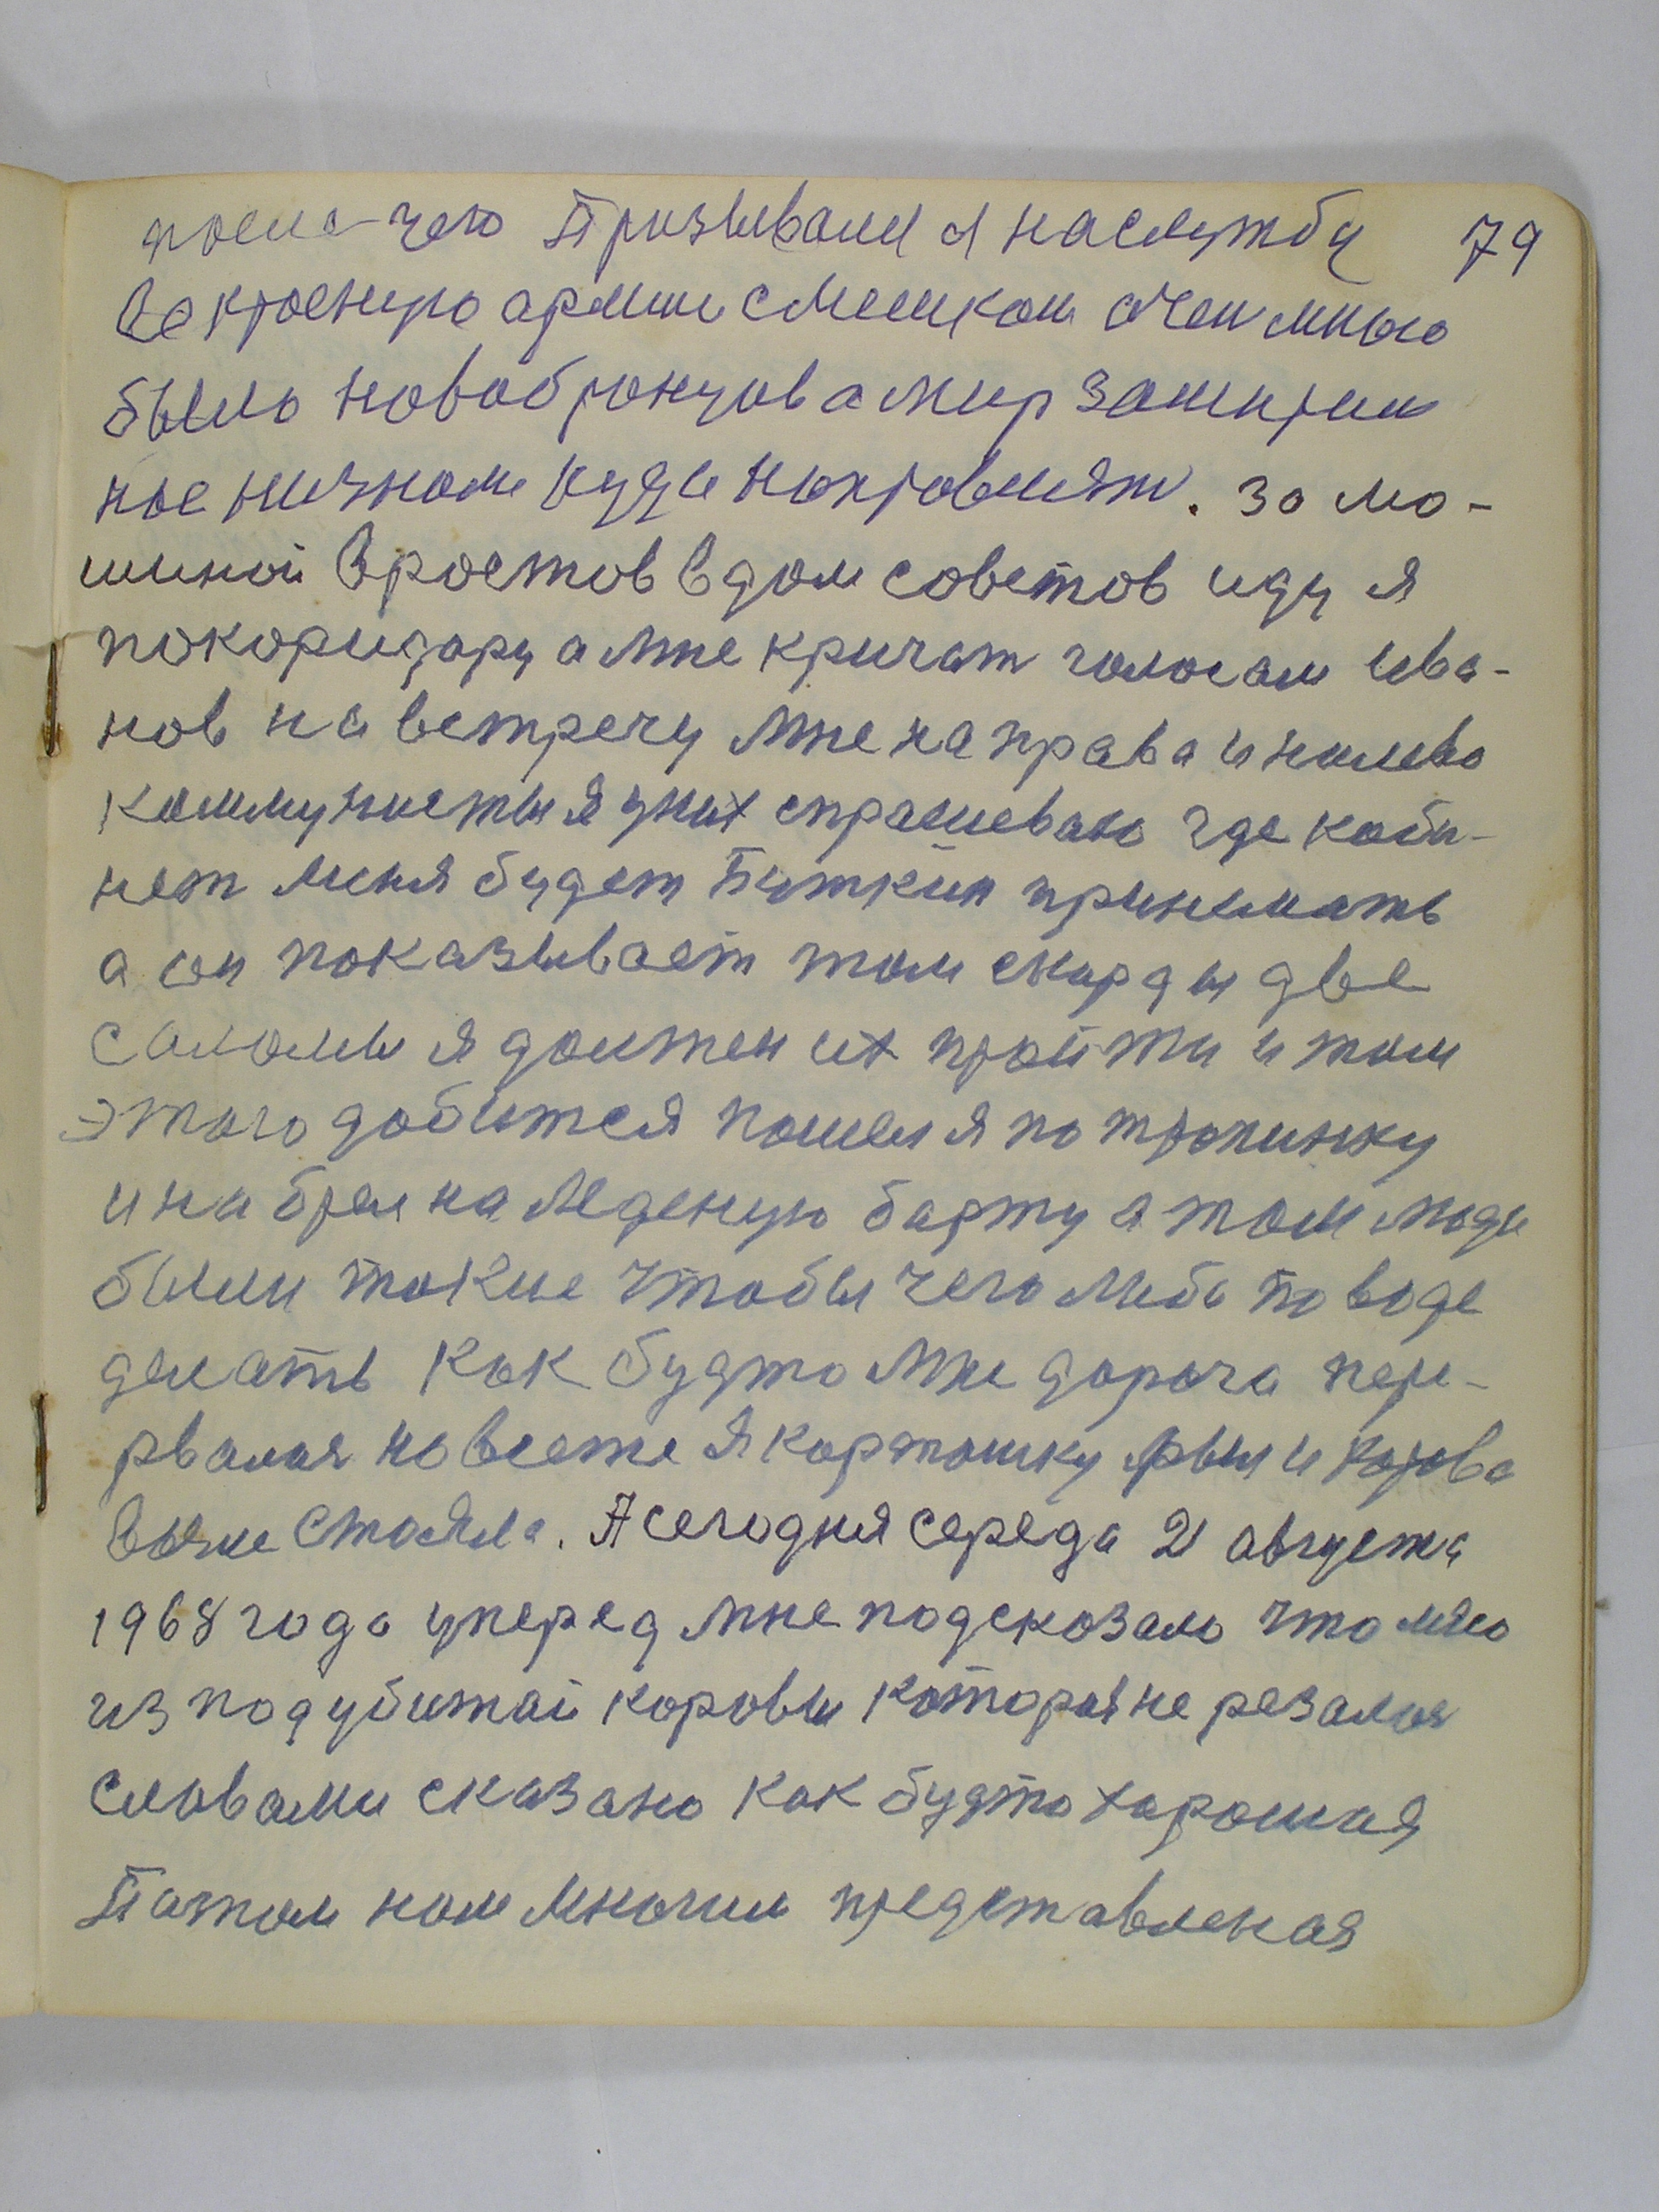 после чего Призывали на службу 79
Ве красную армию с Мешком очен много
было новобранцов а мир закирпи
кое низнаем куда направляят. за ма-
шиной Вростов Вдом советов иду я
покоридару а мне кричат голосам ива-
нов на встречу мне направа и налево
коммунисты я уних спрашеваю где каби-
нет меня будет Буткин принимать
а он показывает там скирды две
Саломы я должен их пройти и там
этого добится пошел я по тропинку
и на брел на леденую барту а там люди
были такие Чтобы чего либо по воде
делать как будто мне дорога пере-
рвалая но все же я картошку рыл и карова
возле стояла. А сегодня середа 21 августа
1968 года уперед мне подсказало что мясо
из подубитай коровы которая не резалая
Словами сказано как будто харошая
Патом нам многим представленая